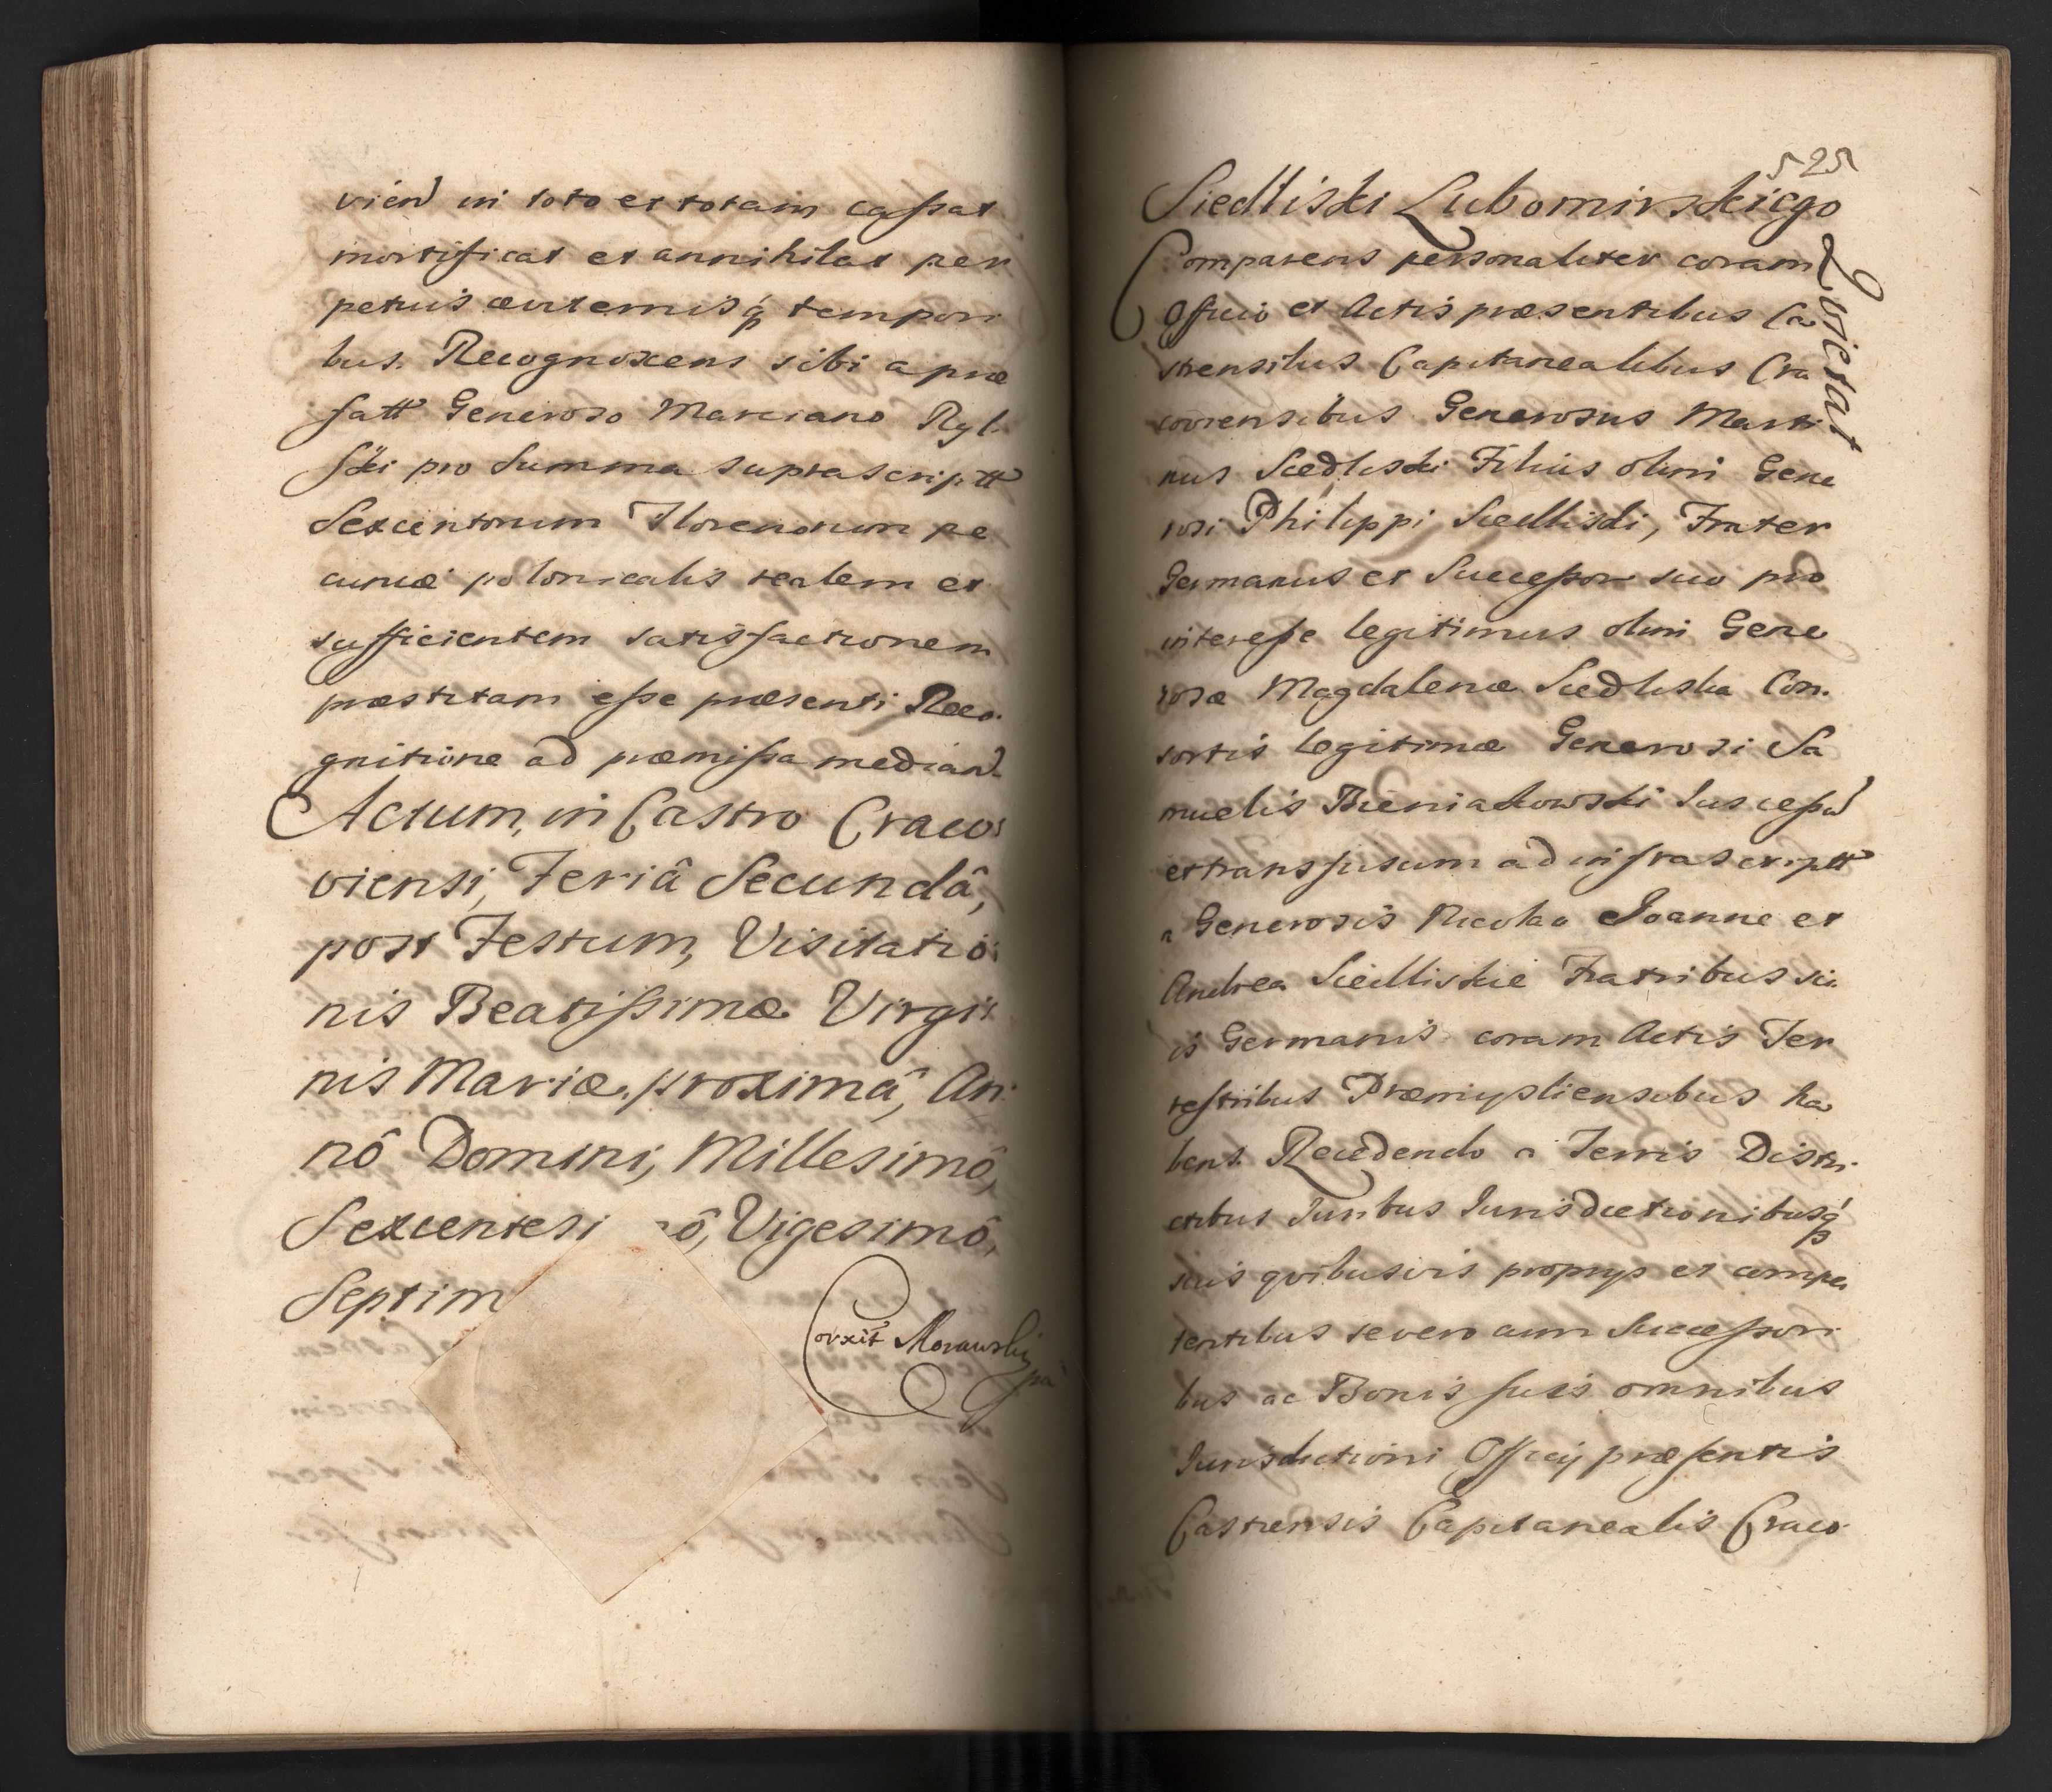 vien in toto et totam cassat
mortificat et annihilat per
petuis æviternisq tempori
bus. Recognoscens sibi a præ
fatt Generoso Marciano Ryl:
ski pro Summa suprascriptt
Sexcentorum Florenorum pe
cuniæ polonicalis realem et
sufficientem satisfactionem
præstitam esse præsenti Reco:
gnitione ad præmissa median.
Actum, in Castro Craco:
viensi, Feriâ Secundâ,
post Festum, Visitatio:
nis Beatissimæ Virgi:
nis Mariæ, proximâ, An:
nô Domini, Millesimô,
Sexcentesi nô, Vigesimô,
Septim
Corxit Morawski
525
Siedliski Lubomirskiego
Quietat
Comparens personaliter coram
Officio et Actis præsentibus Ca
strensibus Capitanealibus Cra
coviensibus Generosus Marti
nus Siedliski Filius olim Gene
rosi Philippi Siedliski, Frater
Germanus et Successor suo pro
interesse legitimus olim Gene
rosæ Magdalenæ Siedliska Con:
sortis legitimæ Generosi Sa
muelis Bieniakowski Ius cessu
et transfusum ad infrascriptt
a Generosis Nicolao Joanne et
Andrea Siedliskie Fratribus su
is Germanis coram Actis Ter
restribus Præmysliensibus ha
bens. Recedendo a Terris Distri
ctibus Iuribus Iurisdictionibusq
suis quibusvis proprys et compe
tentibus se vero cum Successori
bus ac Bonis suis omnibus
Iurisdictioni Officy præsentis
Castrensis Capitanealis Craco